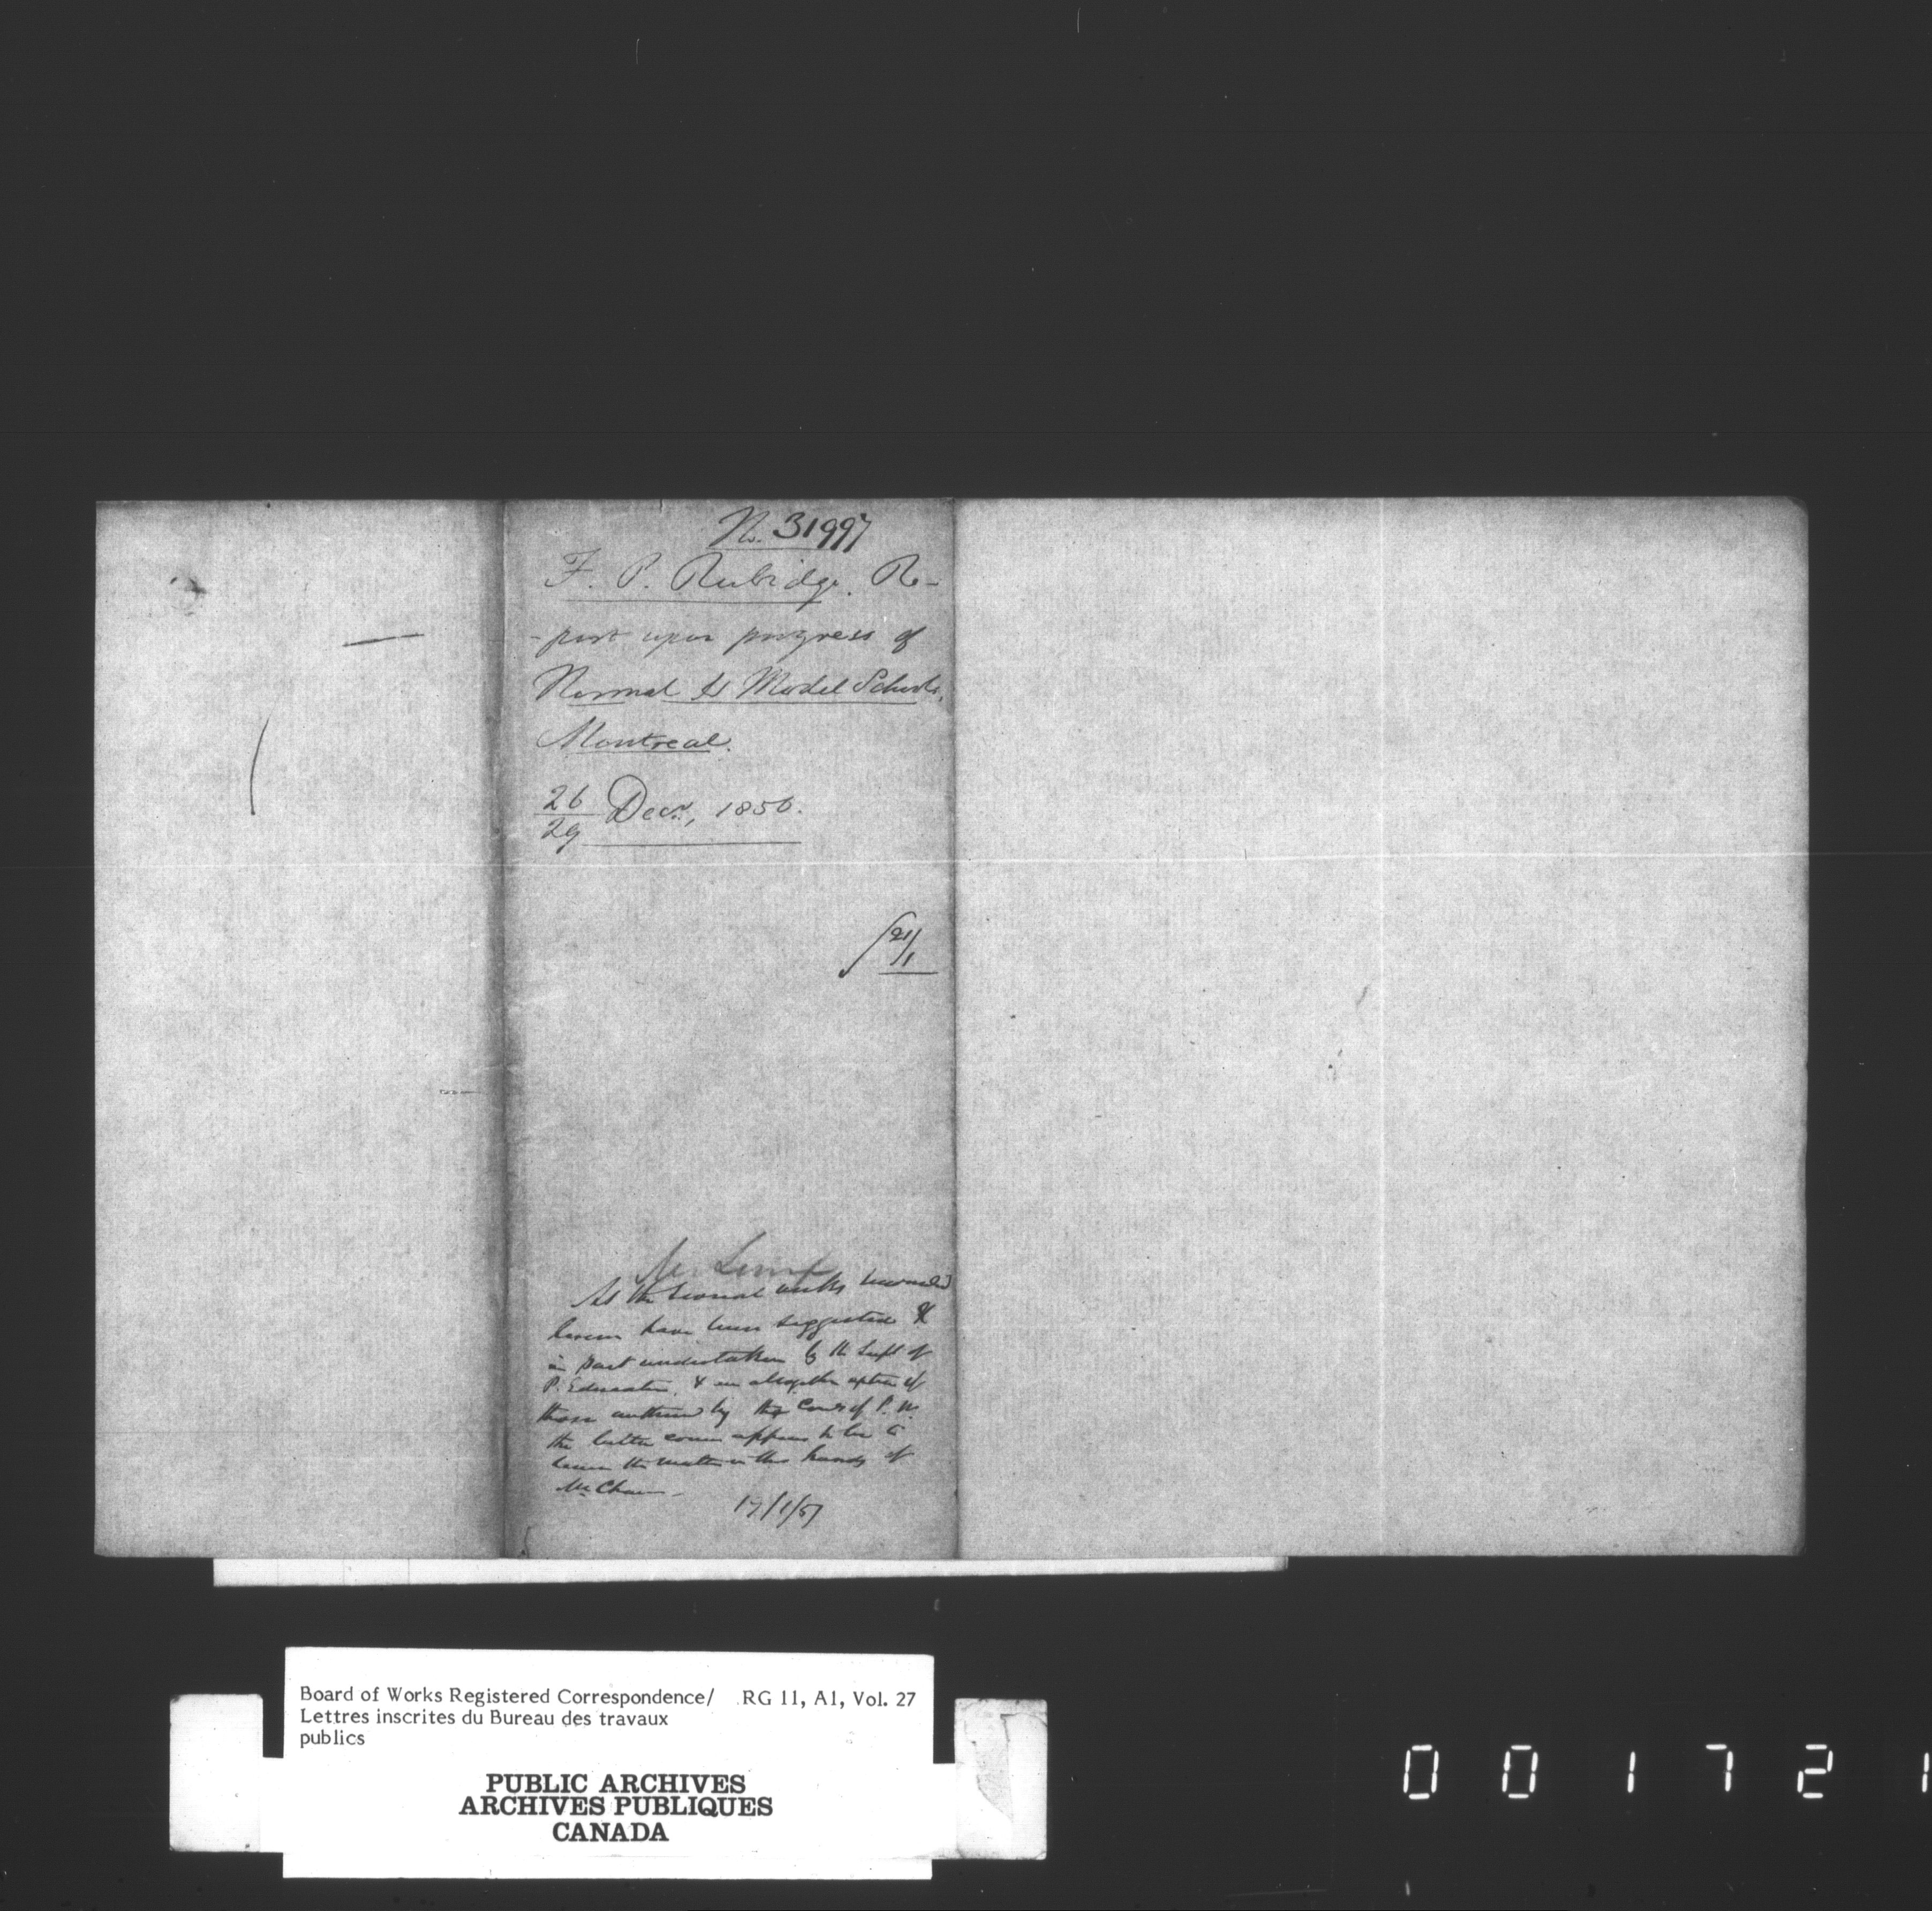 No. 31997
F. P. Rubidge. Re-
-port upon progress of
Normal & Model Schools,
Montreal.
26
29 Decr., 1856.
21/1
As the several works
herein have been suggested &
in part undertaken by the Supt of
P. Education, & are altogether
those by the Comrs of P. W.
the better course appears to be to
leave the matter in the hands of
Mr
17/1/57
Board of Works Registered Correspondence/ RG 11, A1, Vol. 27
Lettres inscrites du Bureau des travaux
publics
PUBLIC ARCHIVES
ARCHIVES PUBLIQUES
CANADA
0 0 1 7 2 1